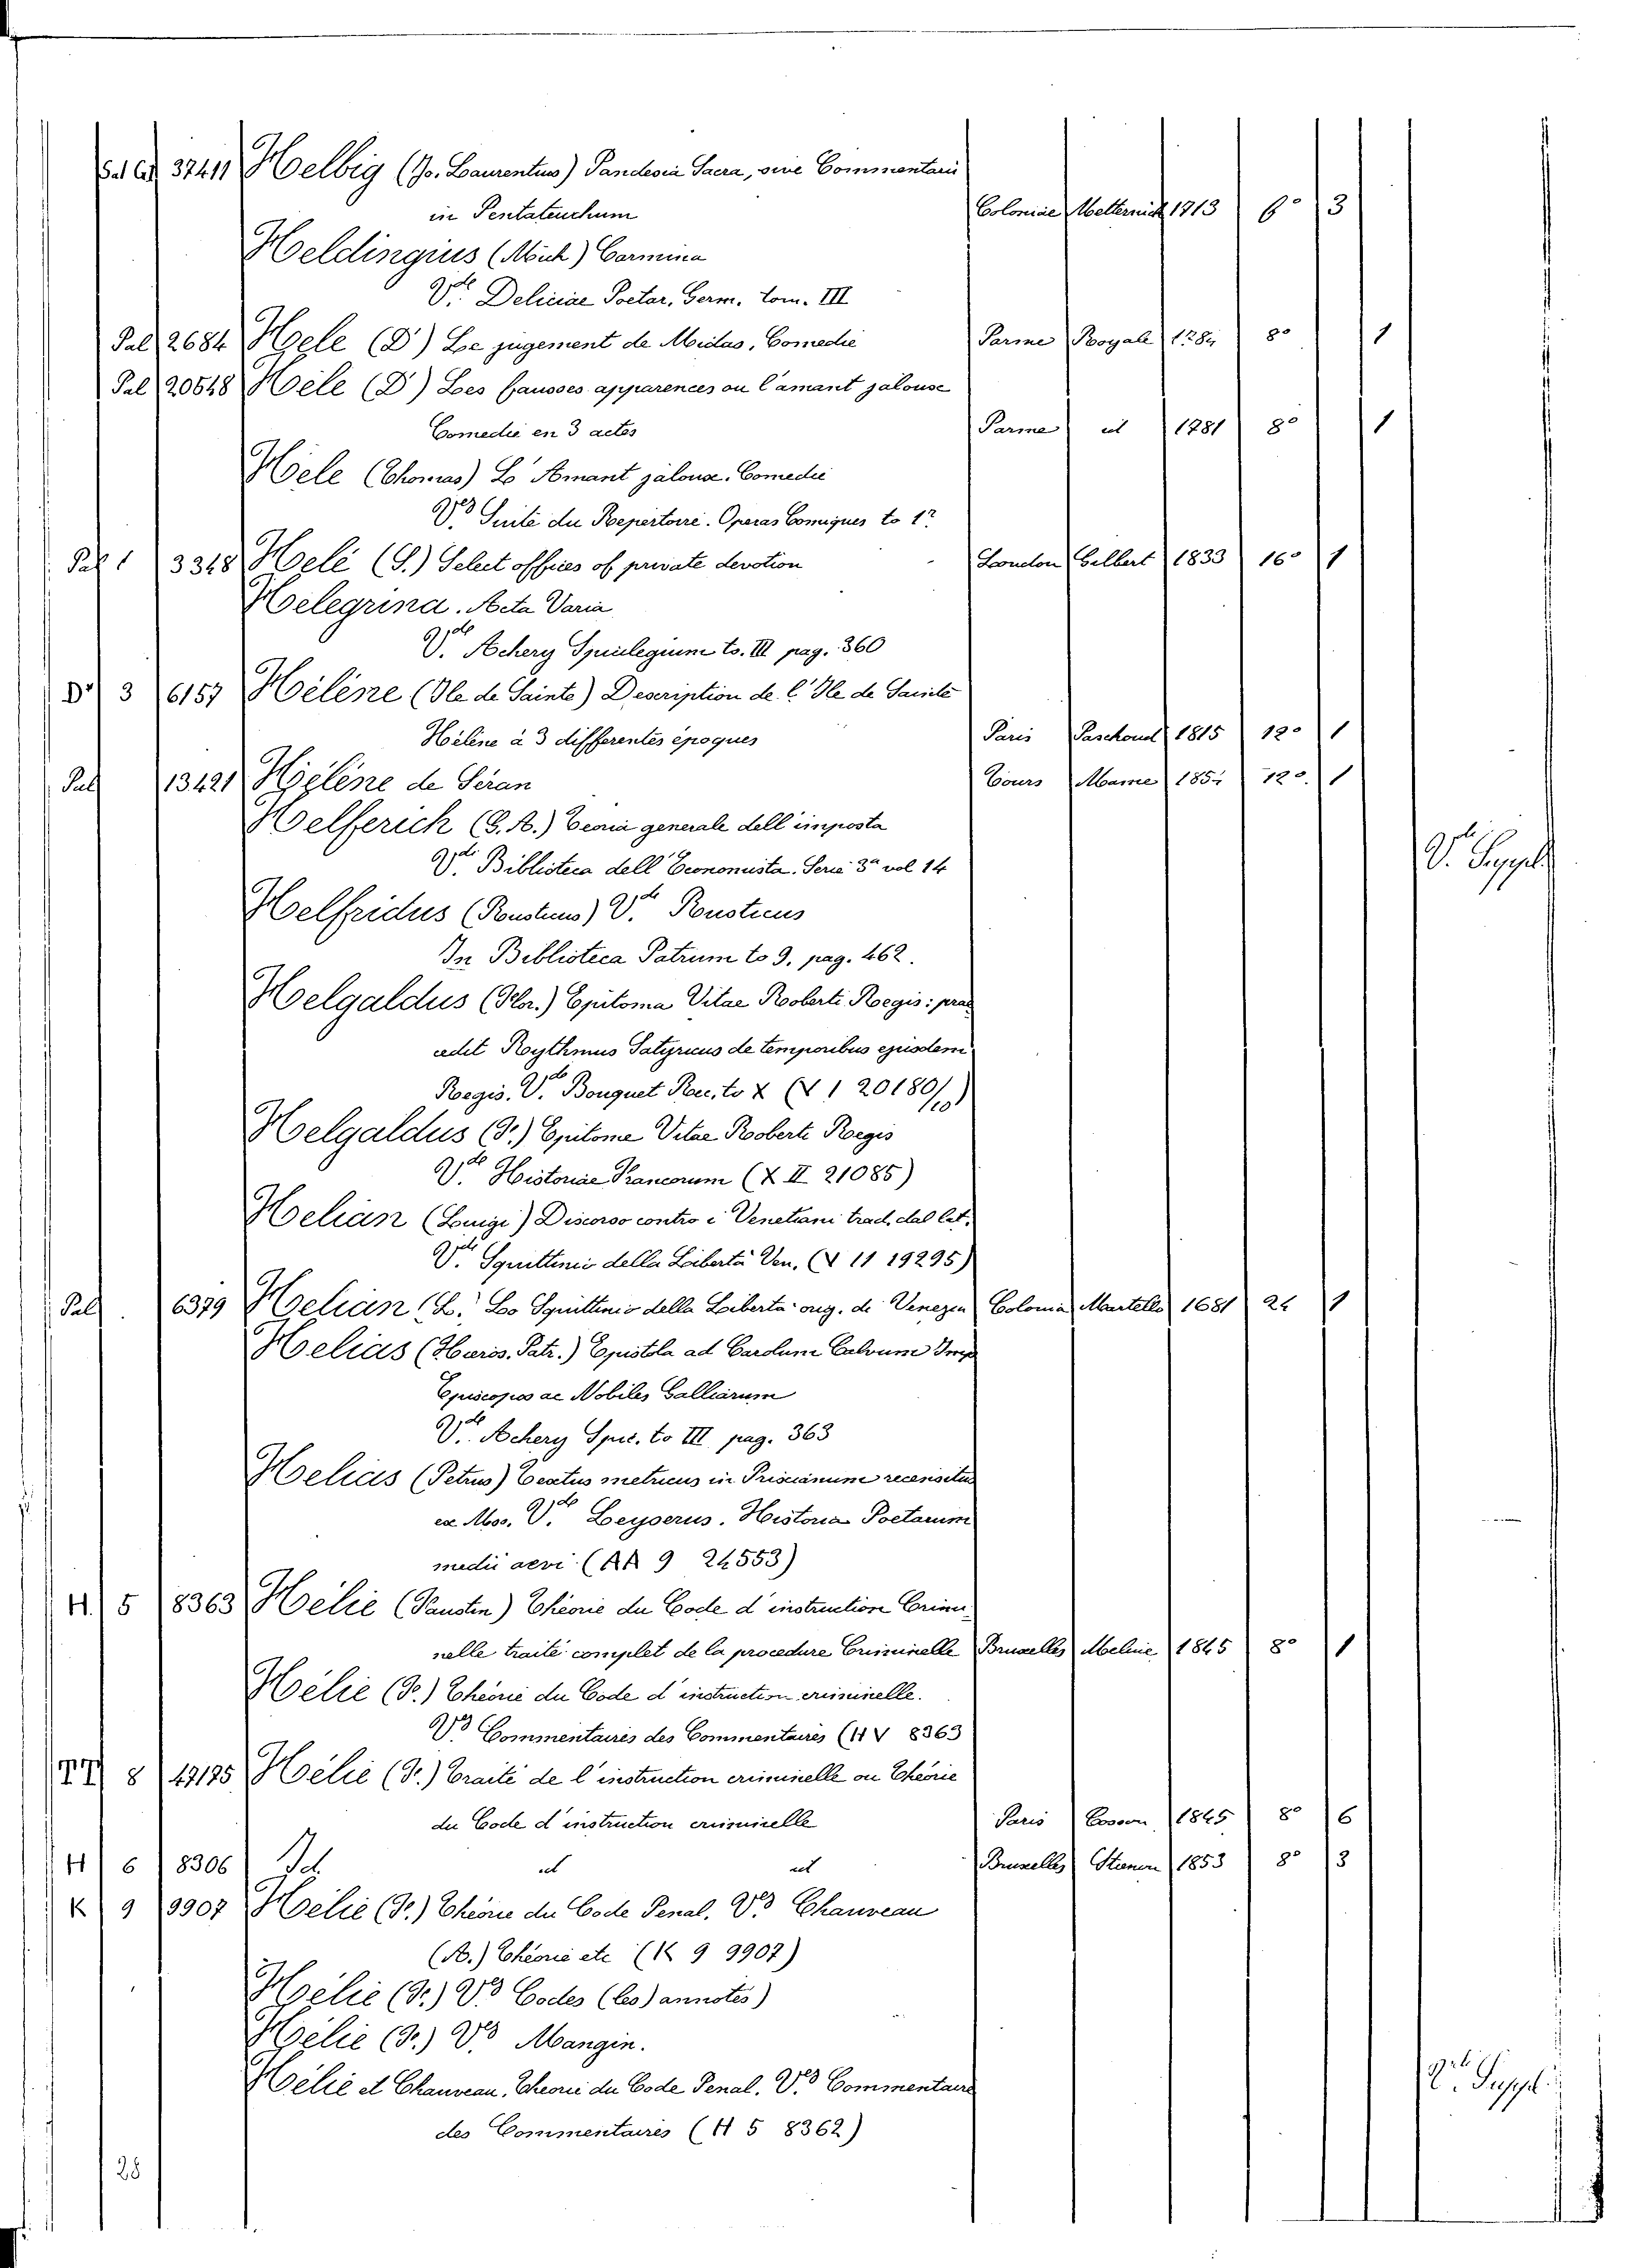 37411 Helbig (Jo. Laurentius) Pandecia Sacra, sive Commentarii
in Pentateuchum Coloniae Metternich 1713 6° 3
Heldingius (Mich) Carmina
V.de Deliciae Poetar. Germ. tom. III
Pal 2684 Hele (D') Le jugement de Midas, Comedie Parme Royale 178. 8° 1
Pal 20548 Hèle (D') Les fausses apparences ou l'amant jalouse
Comedie en 3 actes Parme id 1781 8° 1
Hele (Thomas) L'Amant jalouse. Comedie
V.es Suite du Repertoire. Operas Comiques to 1°
Pal 1 3348 Hele (S.) Select offices of private devotion London Gilbert 1833 16° 1
Helegrina. Acta Varia
V.de Achery Spicilegium to. III pag. 360
D* 3 6157 Hélène (Ile de Sainte) Description de l'Ile de Sainte
Hélène à 3 differentes époques Paris Paschoud 1815 12° 1
Pal 13421 Hélène de Séran Tours Mame 185. 12° 1
Helferich (G. A.) Teoria generale dell'imposta
V.di Biblioteca dell'Economista. Serie 3ª vol 14 V.di Suppl.
Helfridus (Rusticus) V.de Rusticus
In Biblioteca Patrum to 9. pag. 462.
Helgaldus (Flor.) Epitoma Vitae Roberti Regis: prae
cedit Rythmus Satyricus de temporibus ejusdem
Regis. V.de Bouquet Rec. to X (X 1 20180/10)
Helgaldus (F.) Epitome Vitae Roberti Regis
V.de Historiae Francorum (X II 21085)
Helian (Luigi) Discorso contro i Venetiani trad. dal lat.
V.di Squittinio della Libertà Ven. (V 11 19295)
Pal 6379 Helian (L.) Lo Squittinio della Libertà orig. di Venezia Colonia Martello 1681 24 1
Helias (Hieros. Patr.) Epistola ad Carolum Calvum Imp
Episcopos ac Nobiles Galliarum
V.de Achery Spic. to III pag. 363
Helias (Petrus) Tractus metricus in Priscianum recensitus
ex Mss. V.de Leyserus. Historia Poetarum
medii aevi (AA 9 24553)
H. 5 8363 Hélie (Faustin) Théorie du Code d'instruction Crimi
nelle traité complet de la procedure Criminelle Bruxelles Meline 1845 8° 1
Hélie (F.) Théorie du Code d'instruction criminelle.
V.es Commentaires des Commentaires (H V 8363
TT 8 47175 Hélie (F.) Traité de l'instruction criminelle ou Théorie
du Code d'instruction criminelle Paris Cosson 1845 8° 6
H 6 8306 Id. id id Bruxelles Stienon 1853 8° 3
K 9 9907 Hélie (F.) Théorie du Code Penal. V.es Chauveau
(A.) Théorie etc (K 9 9907)
Hélie (F.) V.es Codes (les) annotés)
Hélie (F.) V.es Mangin.
Hélie et Chauveau. Théorie du Code Penal. V.es Commentaire
des Commentaires (H 5 8362) V.di Suppl.
28